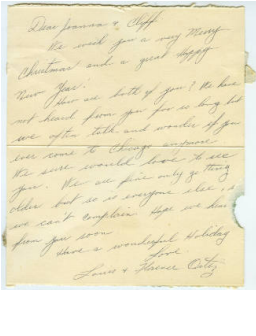 Dear Joanna & Cliff
We wish you a very Merry
Christmas and a great Happy
New Year.
How are both of you? We have
not heard from you for so long but
we often talk and wonder if you
ever come to Chicago anymore
We sure would love to see
you. We are fine only getting
older but so is everyone else, so
we can't complain. Hope we hear
from you soon
Have a wonderful Holiday
Love
Louie & Florence Ortiz